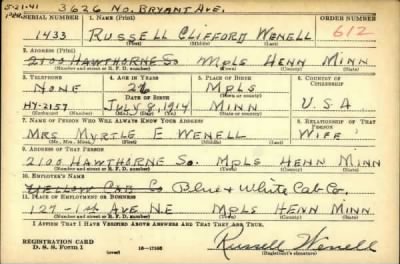 5-21-41 3626 NO. BRYANT AVE.
SERIAL NUMBER 1. NAME (Print) ORDER NUMBER
1433 RUSSELL CLIFFORD WENELL 612
(First) (Middle) (Last)
2. ADDRESS (Print)
2100 HAWTHORNE SO MPLS HENN MINN
(Number and street or R. F. D. number) (Town) (County) (State)
3. TELEPHONE 4. AGE IN YEARS 5. PLACE OF BIRTH 6. COUNTRY OF CITIZENSHIP
NONE 26 MPLS
DATE OF BIRTH (Town or county) U.S.A
HY-2157 JULY 8, 1914 MINN
(Exchange) (Number) (Mo.) (Day) (Yr.) (State or country)
7. NAME OF PERSON WHO WILL ALWAYS KNOW YOUR ADDRESS 8. RELATIONSHIP OF THAT PERSON
MRS MYRTLE E WENELL WIFE
(Mr., Mrs., Miss) (First) (Middle) (Last)
9. ADDRESS OF THAT PERSON
2100 HAWTHORNE SO. MPLS HENN MINN
(Number and street or R. F. D. number) (Town) (County) (State)
10. EMPLOYER'S NAME
YELLOW CAB CO Blue & White Cab Co.
11. PLACE OF EMPLOYMENT OR BUSINESS
127 - 1st AVE N.E MPLS HENN MINN
(Number and street or R. F. D. number) (Town) (County) (State)
I AFFIRM THAT I HAVE VERIFIED ABOVE ANSWERS AND THAT THEY ARE TRUE.
REGISTRATION CARD
D. S. S. FORM 1 (over) 16-17105 Russell Wenell
(Registrant's signature)